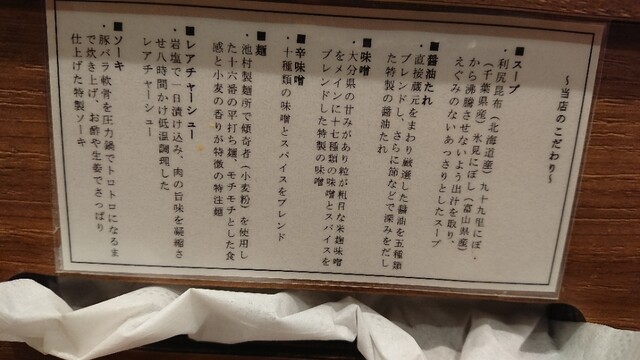 ～当店のこだわり～
■スープ
・利尻昆布（北海道産）九十九里にぼし
（千葉県産）氷見にぼし（富山県産）
から沸騰させないよう出汁を取り、
えぐみのないあっさりとしたスープ
■醤油たれ
・直接蔵元をまわり厳選した醤油を五種類
ブレンドし、さらに節などで深みをだし
た特製の醤油たれ
■味噌
・大分県の甘みがあり粒が粗目な米麹味噌
をメインに十七種類の味噌とスパイスを
ブレンドした特製の味噌
■辛味噌
・十種類の味噌とスパイスをブレンド
■麺
・池村製麺所で傾奇者（小麦粉）を使用し
た十六番の平打ち麺、モチモチとした食
感と小麦の香りが特徴の特注麺
■レアチャーシュー
・岩塩で一日漬け込み、肉の旨味を凝縮さ
せ八時間かけ低温調理した
レアチャーシュー
■ソーキ
・豚バラ軟骨を圧力鍋でトロトロになるま
で炊き上げ、お酢や生姜でさっぱり
仕上げた特製ソーキ